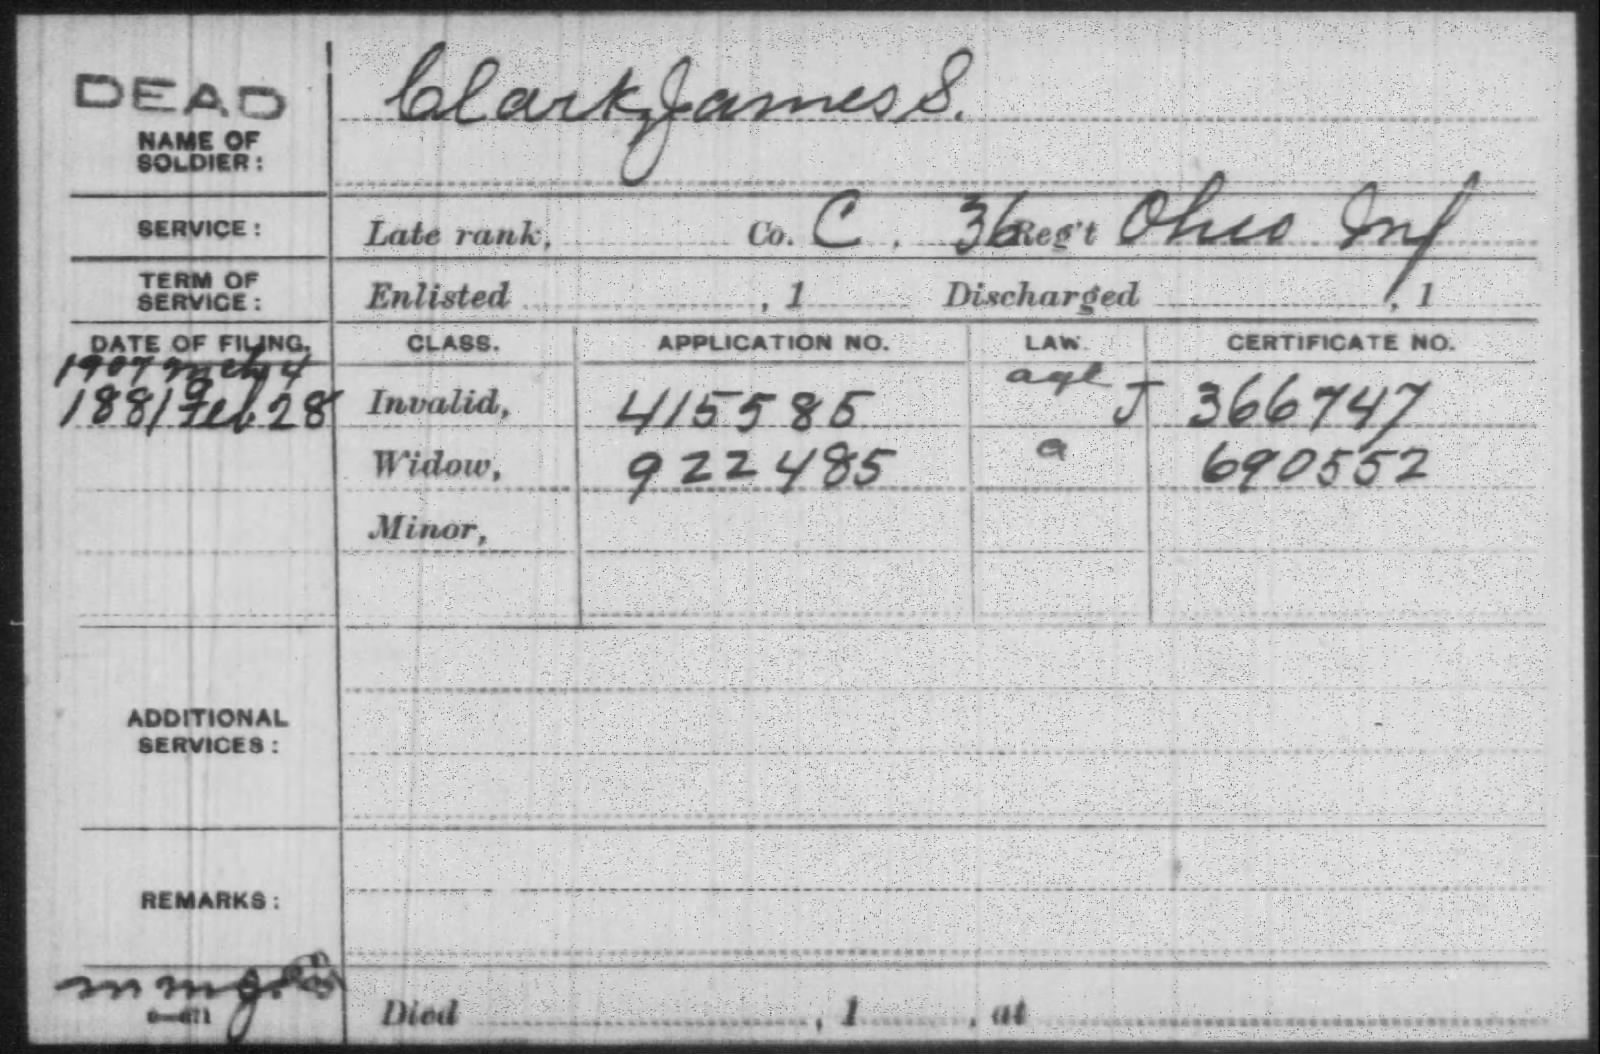 DEAD
Clark, James S.
NAME OF
SOLDIER:
SERVICE: Late rank, Co. C, 36 Reg't Ohio Inf
TERM OF
SERVICE: Enlisted , 1 Discharged , 1
DATE OF FILING. CLASS. APPLICATION NO. LAW. CERTIFICATE NO.
1907 Mch 4 age
1881 Feb 28 Invalid, 415585 J 366747
Widow, 922485 a 690552
Minor,
ADDITIONAL
SERVICES:
REMARKS:
Died , 1 , at